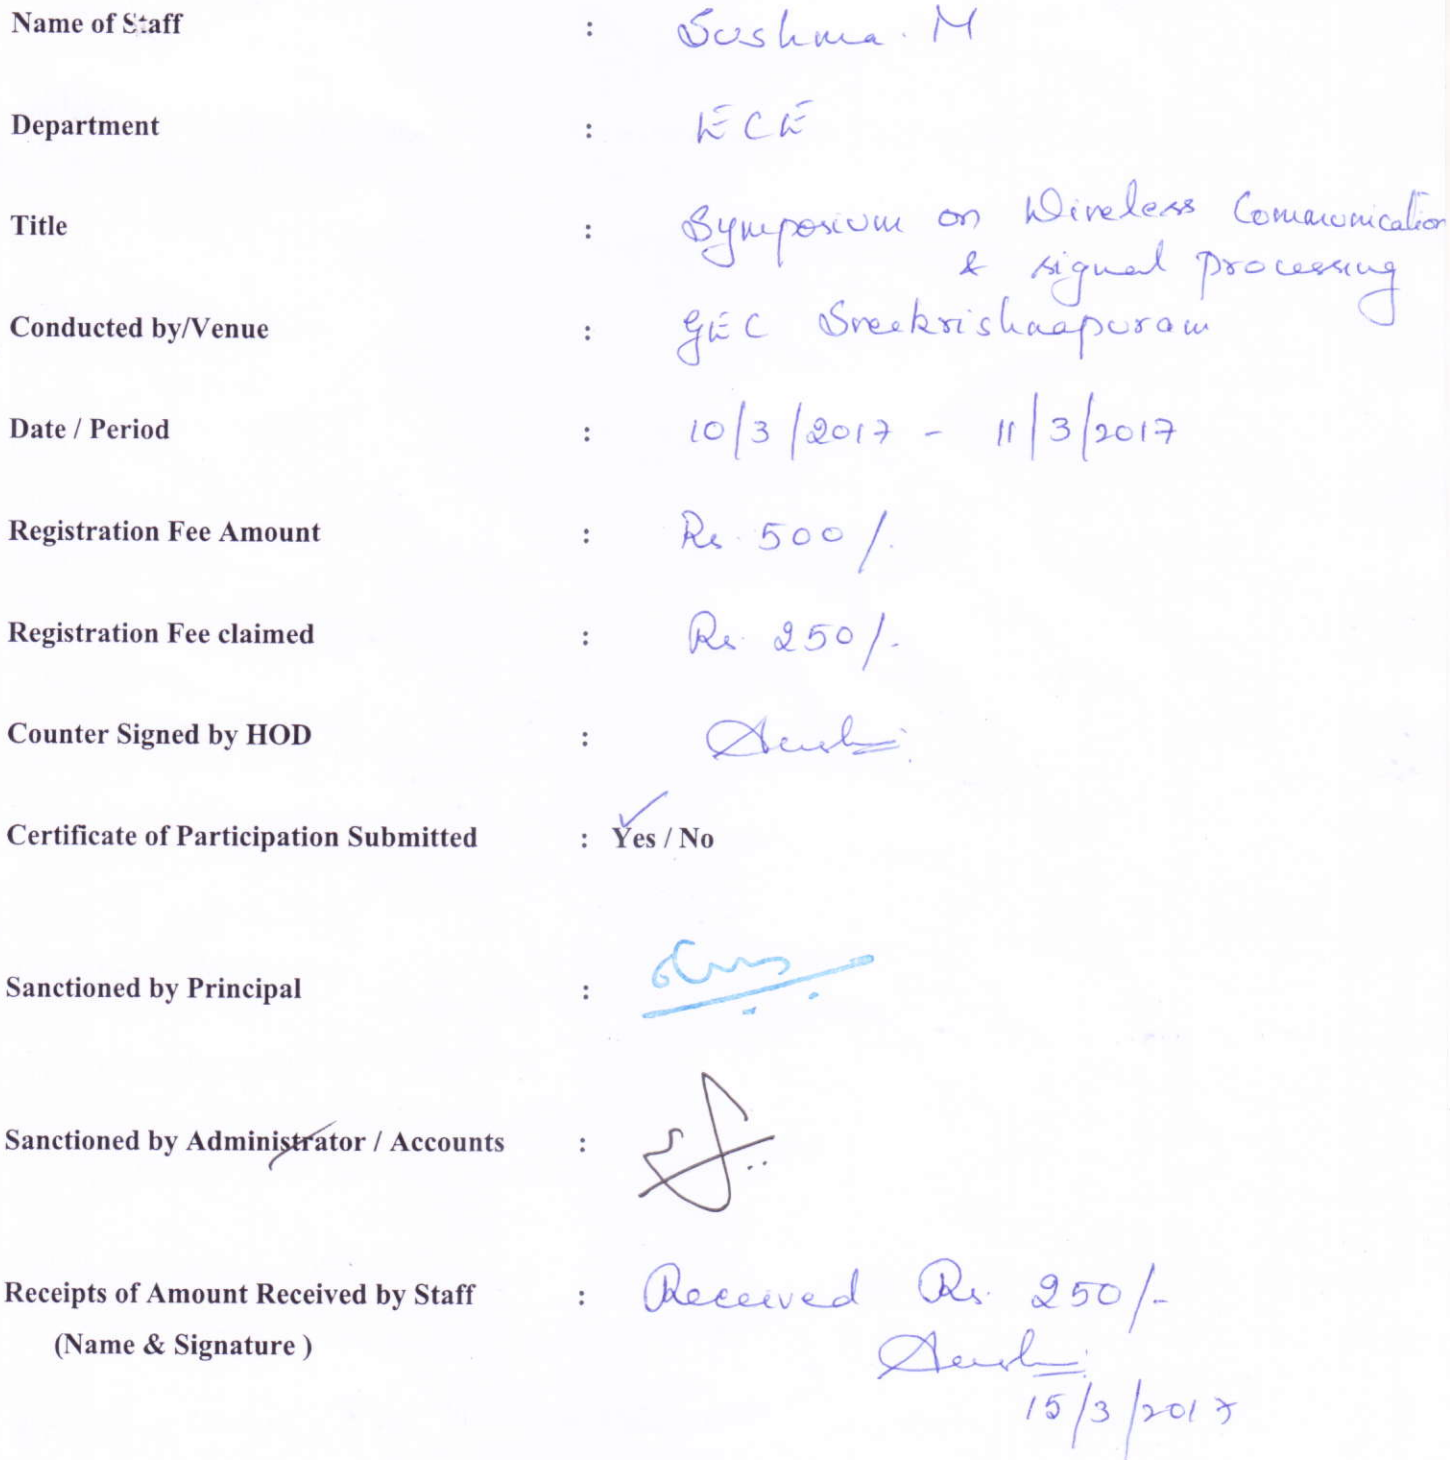 Name of Staff : Sushma. M
Department : ECE
Title : Symposium on Wireless Communication
& signal processing
Conducted by/Venue : GEC Sreekrishnapuram
Date / Period : 10/3/2017 - 11/3/2017
Registration Fee Amount : Rs. 500/.
Registration Fee claimed : Rs. 250/-
Counter Signed by HOD :
Certificate of Participation Submitted : Yes / No
Sanctioned by Principal :
Sanctioned by Administrator / Accounts :
Receipts of Amount Received by Staff : Received Rs. 250/-
(Name & Signature )
15/3/2017